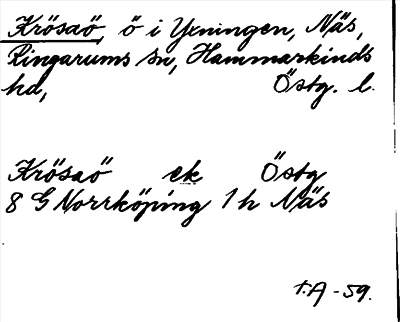 Krösaö, ö i Yxningen, Näs,
Ringarums sn, Hammarkinds
hd, Östg. l.
Krösaö ek Östg
8 G Norrköping 1 h Näs
T.A -59.